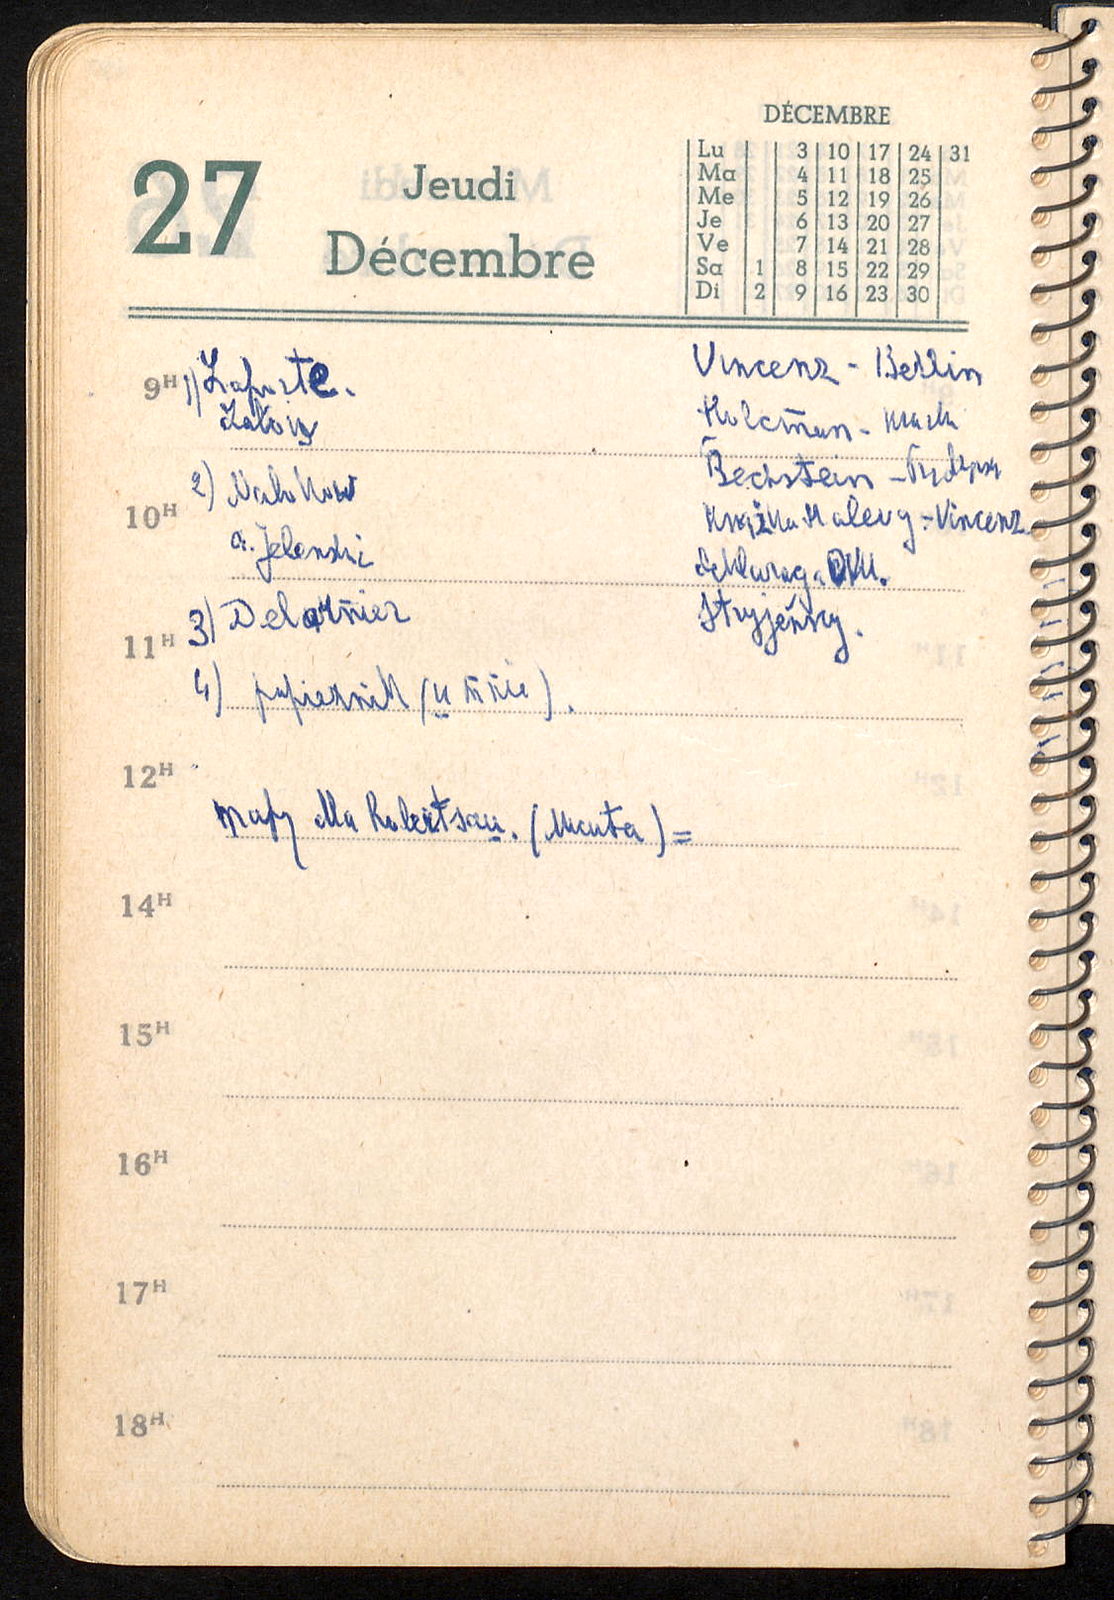 27
Jeudi
Décembre
DÉCEMBRE
Lu 3 10 17 24 31
Ma 4 11 18 25
Me 5 12 19 26
Je 6 13 20 27
Ve 7 14 21 28
Sa 1 8 15 22 29
Di 2 9 16 23 30
9H 1) Laporte.
2) Nabokow
10H
a. Jelenski
3) Delarnier
11H
4) papiernik (u mnie).
12H
mapy dla Robertsau. (Menta) =
14H
15H
16H
17H
18H
Vincenz - Berlin
Holcman -
Bechstein -
Książka Halevy - Vincenz
Stryjeński.